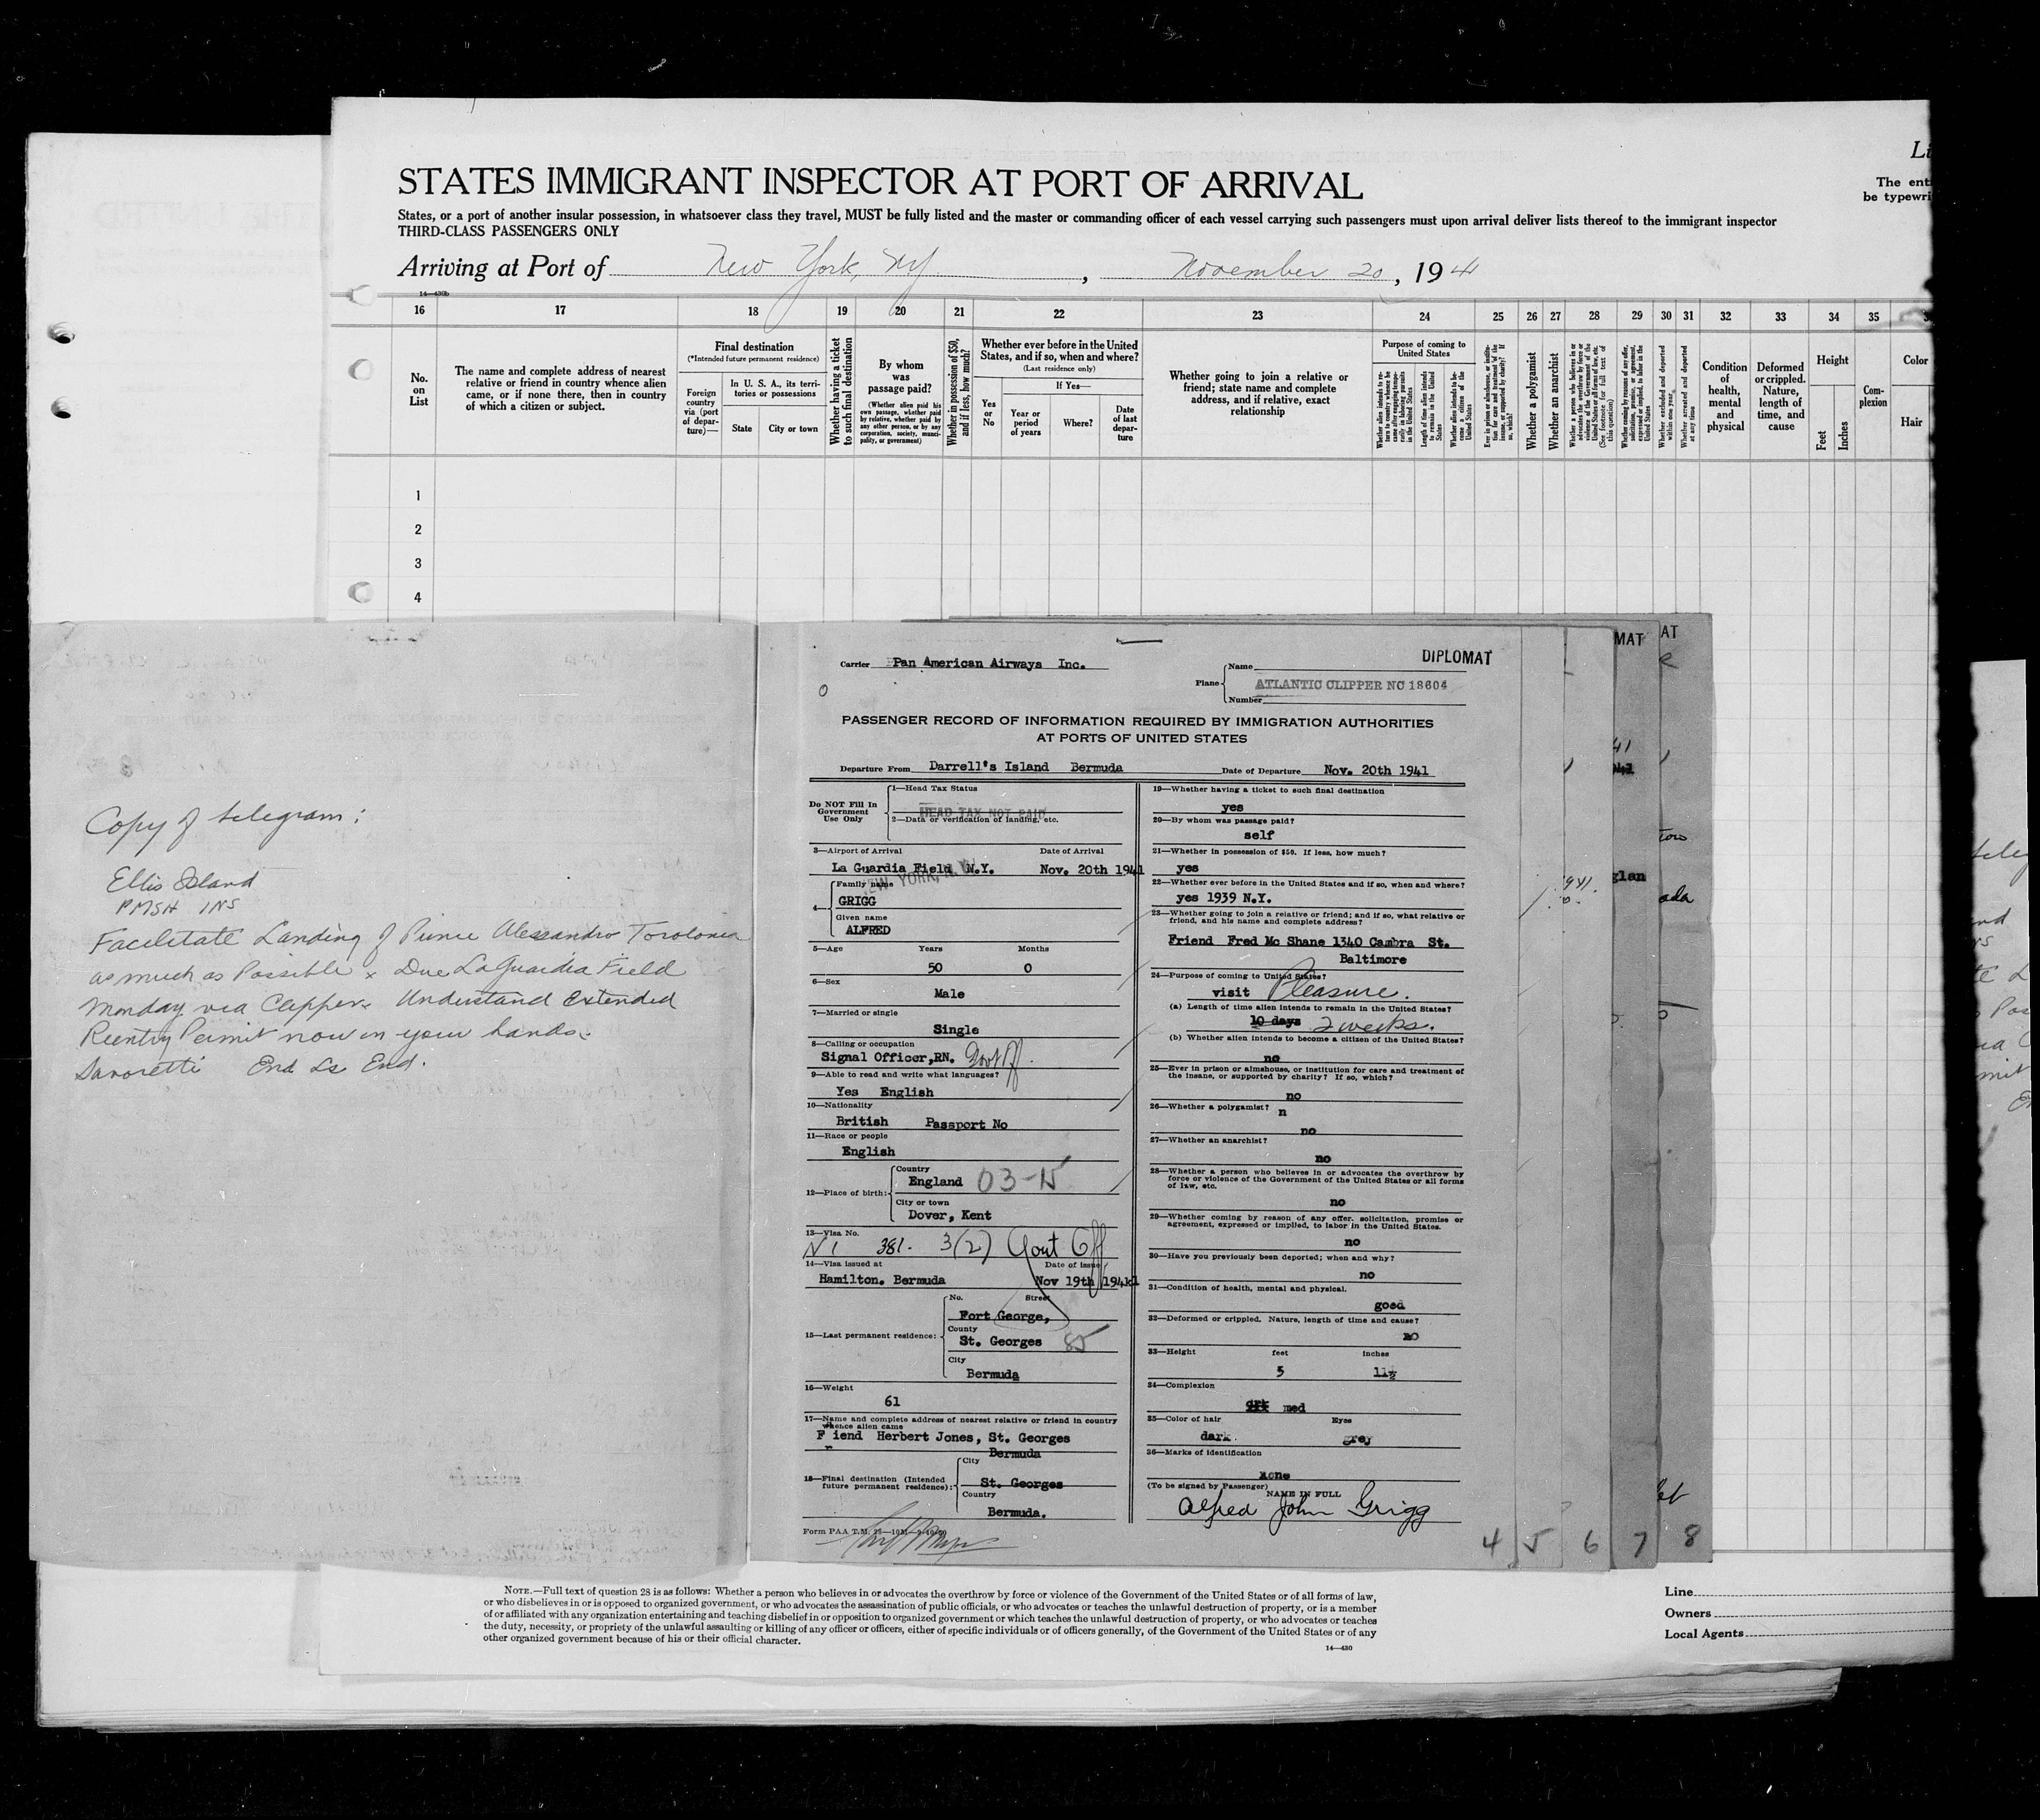 Li
STATES IMMIGRANT INSPECTOR AT PORT OF ARRIVAL
The ent
be typewri
States, or a port of another insular possession, in whatsoever class they travel, MUST be fully listed and the master or commanding officer of each vessel carrying such passengers must upon arrival deliver lists thereof to the immigrant inspector
THIRD-CLASS PASSENGERS ONLY
Arriving at Port of New York, NY, November 20, 1941
14—430b
16 17 18 19 20 21 22 23 24 25 26 27 28 29 30 31 32 33 34 35
No. on List
The name and complete address of nearest
relative or friend in country whence alien
came, or if none there, then in country
of which a citizen or subject.
Final destination
(*Intended future permanent residence)
Foreign
country
via (port
of depar-
ture)—
In U. S. A., its terri-
tories or possessions
State
City or town
Whether having a ticket
to such final destination
By whom
was
passage paid?
(Whether alien paid his
own passage, whether paid
by relative, whether paid by
any other person, or by any
corporation, society, munici-
pality, or government)
Whether in possession of $50,
and if less, how much?
Whether ever before in the United
States, and if so, when and where?
(Last residence only)
If Yes—
Yes
or
No
Year or
period
of years
Where?
Date
of last
depar-
ture
Whether going to join a relative or
friend; state name and complete
address, and if relative, exact
relationship
Purpose of coming to
United States
Whether alien intends to re-
turn to country whence he
came after engaging tempo-
rarily in laboring pursuits
in the United States
Length of time alien intends
to remain in the United
States
Whether alien intends to be-
come a citizen of the
United States
Ever in prison or almshouse, or institu-
tion for care and treatment of the
insane, or supported by charity? If
so, which?
Whether a polygamist
Whether an anarchist
Whether a person who believes in or
advocates the overthrow by force or
violence of the Government of the
United States or all forms of law, etc.
(See footnote for full text of
this question)
Whether coming by reason of any offer,
solicitation, promise, or agreement,
expressed or implied, to labor in the
United States
Whether excluded and deported
within one year
Whether arrested and deported
at any time
Condition
of
health,
mental
and
physical
Deformed
or crippled.
Nature,
length of
time, and
cause
Height
Feet
Inches
Com-
plexion
Color
Hair
1
2
3
4
Copy of telegram:
Ellis Island
PMSH INS
Facilitate Landing of Prince Alessandro Torolonia
as much as Possible x Due LaGuardia Field
Monday via Clipper x Understand Extended
Reentry Permit now in your hands.
Savoretti End Ls End.
DIPLOMAT
MAT
AT
Carrier Pan American Airways Inc.
Plane
Name
ATLANTIC CLIPPER NC 18604
Number
PASSENGER RECORD OF INFORMATION REQUIRED BY IMMIGRATION AUTHORITIES
AT PORTS OF UNITED STATES
Departure From Darrell's Island Bermuda
Date of Departure Nov. 20th 1941
Do NOT Fill In
Government
Use Only
1—Head Tax Status
HEAD TAX NOT PAID
2—Data or verification of landing, etc.
3—Airport of Arrival Date of Arrival
La Guardia Field N.Y. Nov. 20th 1941
NEW YORK, N.Y.
4—
Family name
GRIGG
Given name
ALFRED
5—Age Years Months
50 0
6—Sex
Male
7—Married or single
Single
8—Calling or occupation
Signal Officer,RN. Govt Off.
9—Able to read and write what languages?
Yes English
10—Nationality
British Passport No
11—Race or people
English
12—Place of birth:
Country
England 03-15
City or town
Dover, Kent
13—Visa No.
381. 3(2) Govt Off
14—Visa issued at Date of issue
Hamilton. Bermuda Nov 19th 1941
15—Last permanent residence:
No. Street
Fort George,
County
St. Georges 85
City
Bermuda
16—Weight
61
17—Name and complete address of nearest relative or friend in country
whence alien came
F iend Herbert Jones, St. Georges
r
Bermuda
18—Final destination (Intended
future permanent residence):
City
St. Georges
Country
Bermuda.
Form PAA T.M.
19—Whether having a ticket to such final destination
yes
20—By whom was passage paid?
self
21—Whether in possession of $50. If less, how much?
yes
22—Whether ever before in the United States and if so, when and where?
yes 1939 N.Y.
23—Whether going to join a relative or friend; and if so, what relative or
friend, and his name and complete address?
Friend Fred Mc Shane 1340 Cambra St.
Baltimore
24—Purpose of coming to United States?
visit Pleasure.
(a) Length of time alien intends to remain in the United States?
10 days 2 weeks.
(b) Whether alien intends to become a citizen of the United States?
no
25—Ever in prison or almshouse, or institution for care and treatment of
the insane, or supported by charity? If so, which?
no
26—Whether a polygamist?
n
no
27—Whether an anarchist?
no
28—Whether a person who believes in or advocates the overthrow by
force or violence of the Government of the United States or all forms
of law, etc.
no
29—Whether coming by reason of any offer, solicitation, promise or
agreement, expressed or implied, to labor in the United States.
no
30—Have you previously been deported; when and why?
no
31—Condition of health, mental and physical.
good
32—Deformed or crippled. Nature, length of time and cause?
no
33—Height feet inches
5 11½
34—Complexion
med
35—Color of hair Eyes
dark grey
36—Marks of identification
none
(To be signed by Passenger)
NAME IN FULL
Alfred John Grigg
4 5 6 7 8
NOTE.—Full text of question 28 is as follows: Whether a person who believes in or advocates the overthrow by force or violence of the Government of the United States or of all forms of law,
or who disbelieves in or is opposed to organized government, or who advocates the assassination of public officials, or who advocates or teaches the unlawful destruction of property, or is a member
of or affiliated with any organization entertaining and teaching disbelief in or opposition to organized government or which teaches the unlawful destruction of property, or who advocates or teaches
the duty, necessity, or propriety of the unlawful assaulting or killing of any officer or officers, either of specific individuals or of officers generally, of the Government of the United States or of any
other organized government because of his or their official character.
14—430
Line
Owners
Local Agents